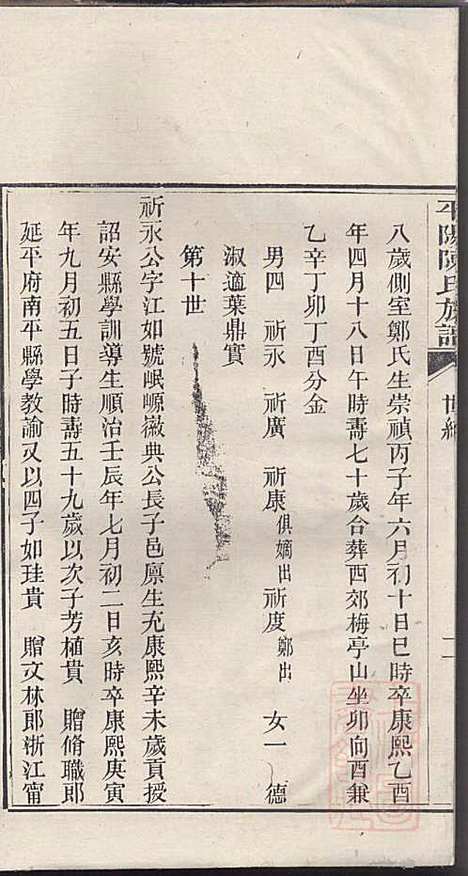 平陽陳氏族譜
世紀
八歲側室鄭氏生崇禎丙子年六月初十日巳時卒康熙乙酉
年四月十八日午時壽七十歲合葬西郊梅亭山坐卯向酉兼
乙辛丁卯丁酉分金
男四 祈永 祈廣 祈康俱嫡出 祈度鄭出 女一 德
淑適葉鼎實
第十世
祈永公字江如號岷嶫徽典公長子邑廪生充康熙辛未歲貢授
詔安縣學訓導生順治壬辰年七月初二日亥時卒康熙庚寅
年九月初五日子時壽五十九歲以次子芳植貴 贈脩職郎
延平府南平縣學教諭又以四子如珪貴 贈文林郎浙江甯